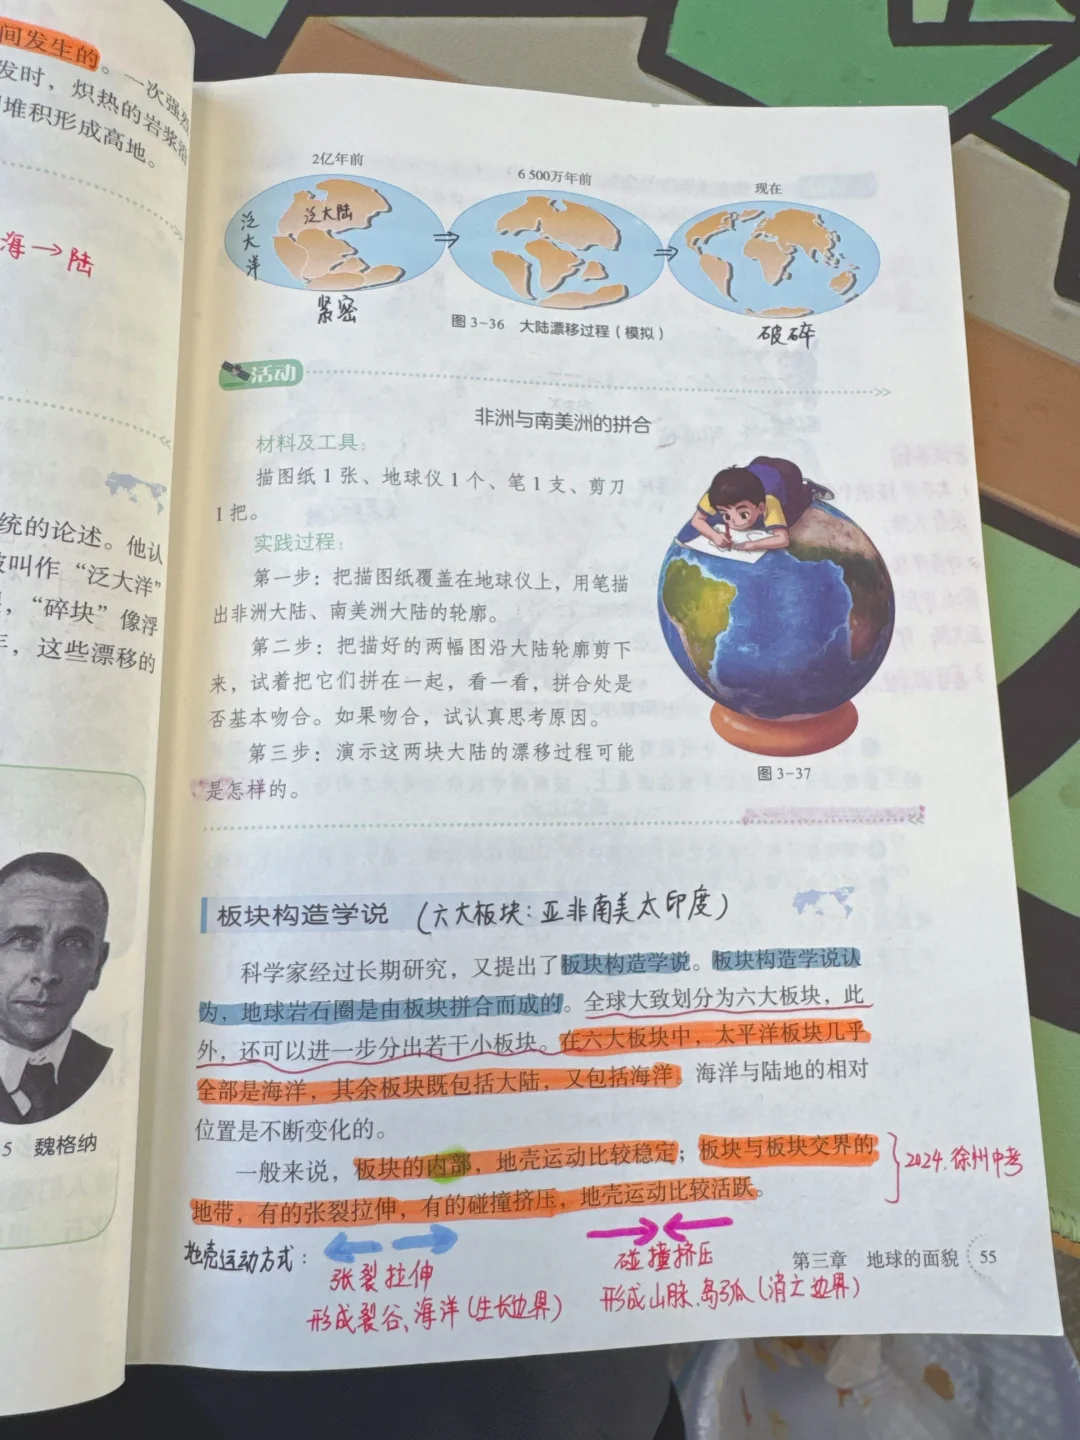 间发生的。一次强烈
发时，炽热的岩浆沿
堆积形成高地。
海→陆
统的论述。他认
叫作“泛大洋”
，“碎块”像浮
，这些漂移的
5 魏格纳
2亿年前
6 500万年前
现在
泛大洋
泛大陆
紧密
图 3-36 大陆漂移过程（模拟）
破碎
活动
非洲与南美洲的拼合
材料及工具：
描图纸 1 张、地球仪 1 个、笔 1 支、剪刀
1 把。
实践过程：
第一步：把描图纸覆盖在地球仪上，用笔描
出非洲大陆、南美洲大陆的轮廓。
第二步：把描好的两幅图沿大陆轮廓剪下
来，试着把它们拼在一起，看一看，拼合处是
否基本吻合。如果吻合，试认真思考原因。
第三步：演示这两块大陆的漂移过程可能
是怎样的。
图 3-37
板块构造学说 （六大板块：亚非南美太印度）
科学家经过长期研究，又提出了板块构造学说。板块构造学说认
为，地球岩石圈是由板块拼合而成的。全球大致划分为六大板块，此
外，还可以进一步分出若干小板块。在六大板块中，太平洋板块几乎
全部是海洋，其余板块既包括大陆，又包括海洋。海洋与陆地的相对
位置是不断变化的。
一般来说，板块的内部，地壳运动比较稳定；板块与板块交界的
地带，有的张裂拉伸，有的碰撞挤压，地壳运动比较活跃。
2024.徐州中考
地壳运动方式：
张裂拉伸
形成裂谷、海洋（生长边界）
碰撞挤压
形成山脉、岛弧（消亡边界）
第三章 地球的面貌 55